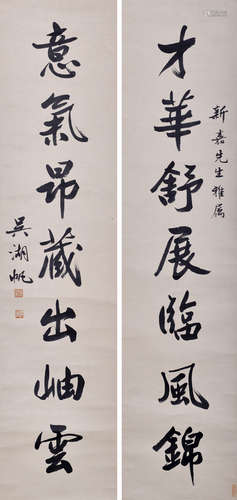 才華舒展臨風錦
新嘉先生雅屬
意氣昂藏出岫雲
吳湖帆